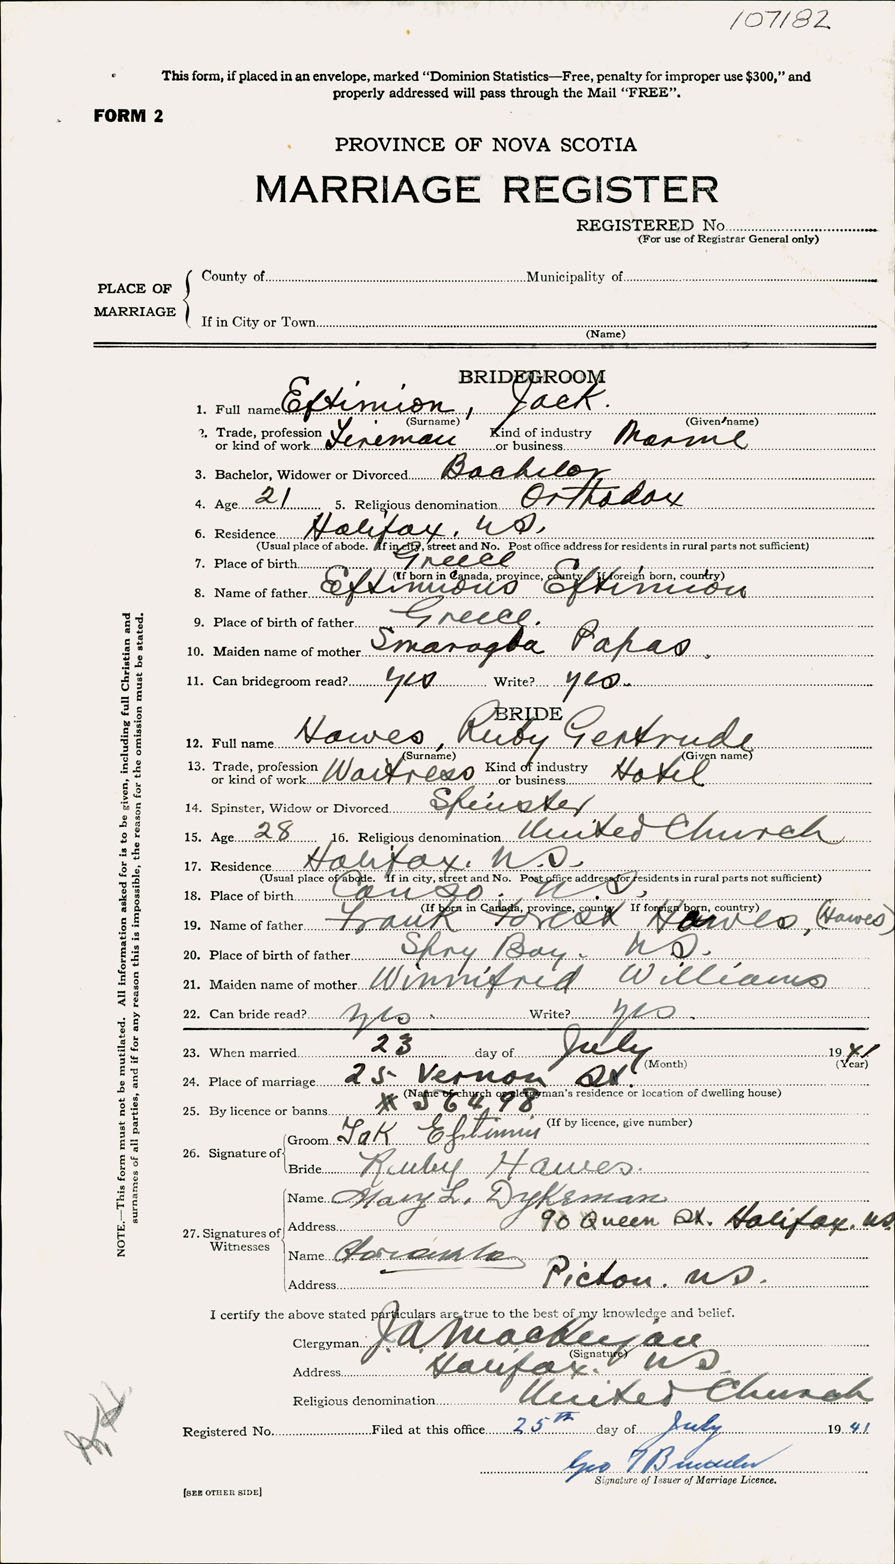 107182
This form, if placed in an envelope, marked "Dominion Statistics—Free, penalty for improper use $300," and
properly addressed will pass through the Mail "FREE".
FORM 2
PROVINCE OF NOVA SCOTIA
MARRIAGE REGISTER
REGISTERED No.
(For use of Registrar General only)
PLACE OF MARRIAGE
County of Municipality of
If in City or Town
(Name)
BRIDEGROOM
1. Full name Eftimion, Jack.
(Surname) (Given name)
2. Trade, profession or kind of work Fireman Kind of industry or business Marine
3. Bachelor, Widower or Divorced Bachelor
4. Age 21 5. Religious denomination Orthodox
6. Residence Halifax, N.S.
(Usual place of abode. If in city, street and No. Post office address for residents in rural parts not sufficient)
7. Place of birth Greece
(If born in Canada, province, county. If foreign born, country)
8. Name of father Eftimious Eftimion
9. Place of birth of father Greece.
10. Maiden name of mother Smaragda Papas.
11. Can bridegroom read? yes Write? yes.
BRIDE
12. Full name Hawes, Ruby Gertrude
(Surname) (Given name)
13. Trade, profession or kind of work Waitress Kind of industry or business Hotel
14. Spinster, Widow or Divorced Spinster
15. Age 28 16. Religious denomination United Church
17. Residence Halifax. N.S.
(Usual place of abode. If in city, street and No. Post office address for residents in rural parts not sufficient)
18. Place of birth Canso. N.S.
(If born in Canada, province, county If foreign born, country)
19. Name of father Frank Forest Hawes, (Hawes)
20. Place of birth of father Spry Bay. N.S.
21. Maiden name of mother Winnifred Williams
22. Can bride read? yes. Write? yes.
23. When married 23 day of July 1941
(Month) (Year)
24. Place of marriage 25 Vernon St.
(Name of church or clergyman's residence or location of dwelling house)
25. By licence or banns # 56498
(If by licence, give number)
26. Signature of
Groom Jak Eftimiu
Bride Ruby Hawes.
27. Signatures of Witnesses
Name Mary L. Dykeman
Address 90 Queen St. Halifax. N.S.
Name
Address Pictou. N.S.
I certify the above stated particulars are true to the best of my knowledge and belief.
Clergyman J A MacKenzie
(Signature)
Address Halifax. N.S.
Religious denomination United Church
Registered No. Filed at this office 25th day of July 1941
Geo T
Signature of Issuer of Marriage Licence.
[SEE OTHER SIDE]
NOTE.—This form must not be mutilated. All information asked for is to be given, including full Christian and
surnames of all parties, and if for any reason this is impossible, the reason for the omission must be stated.